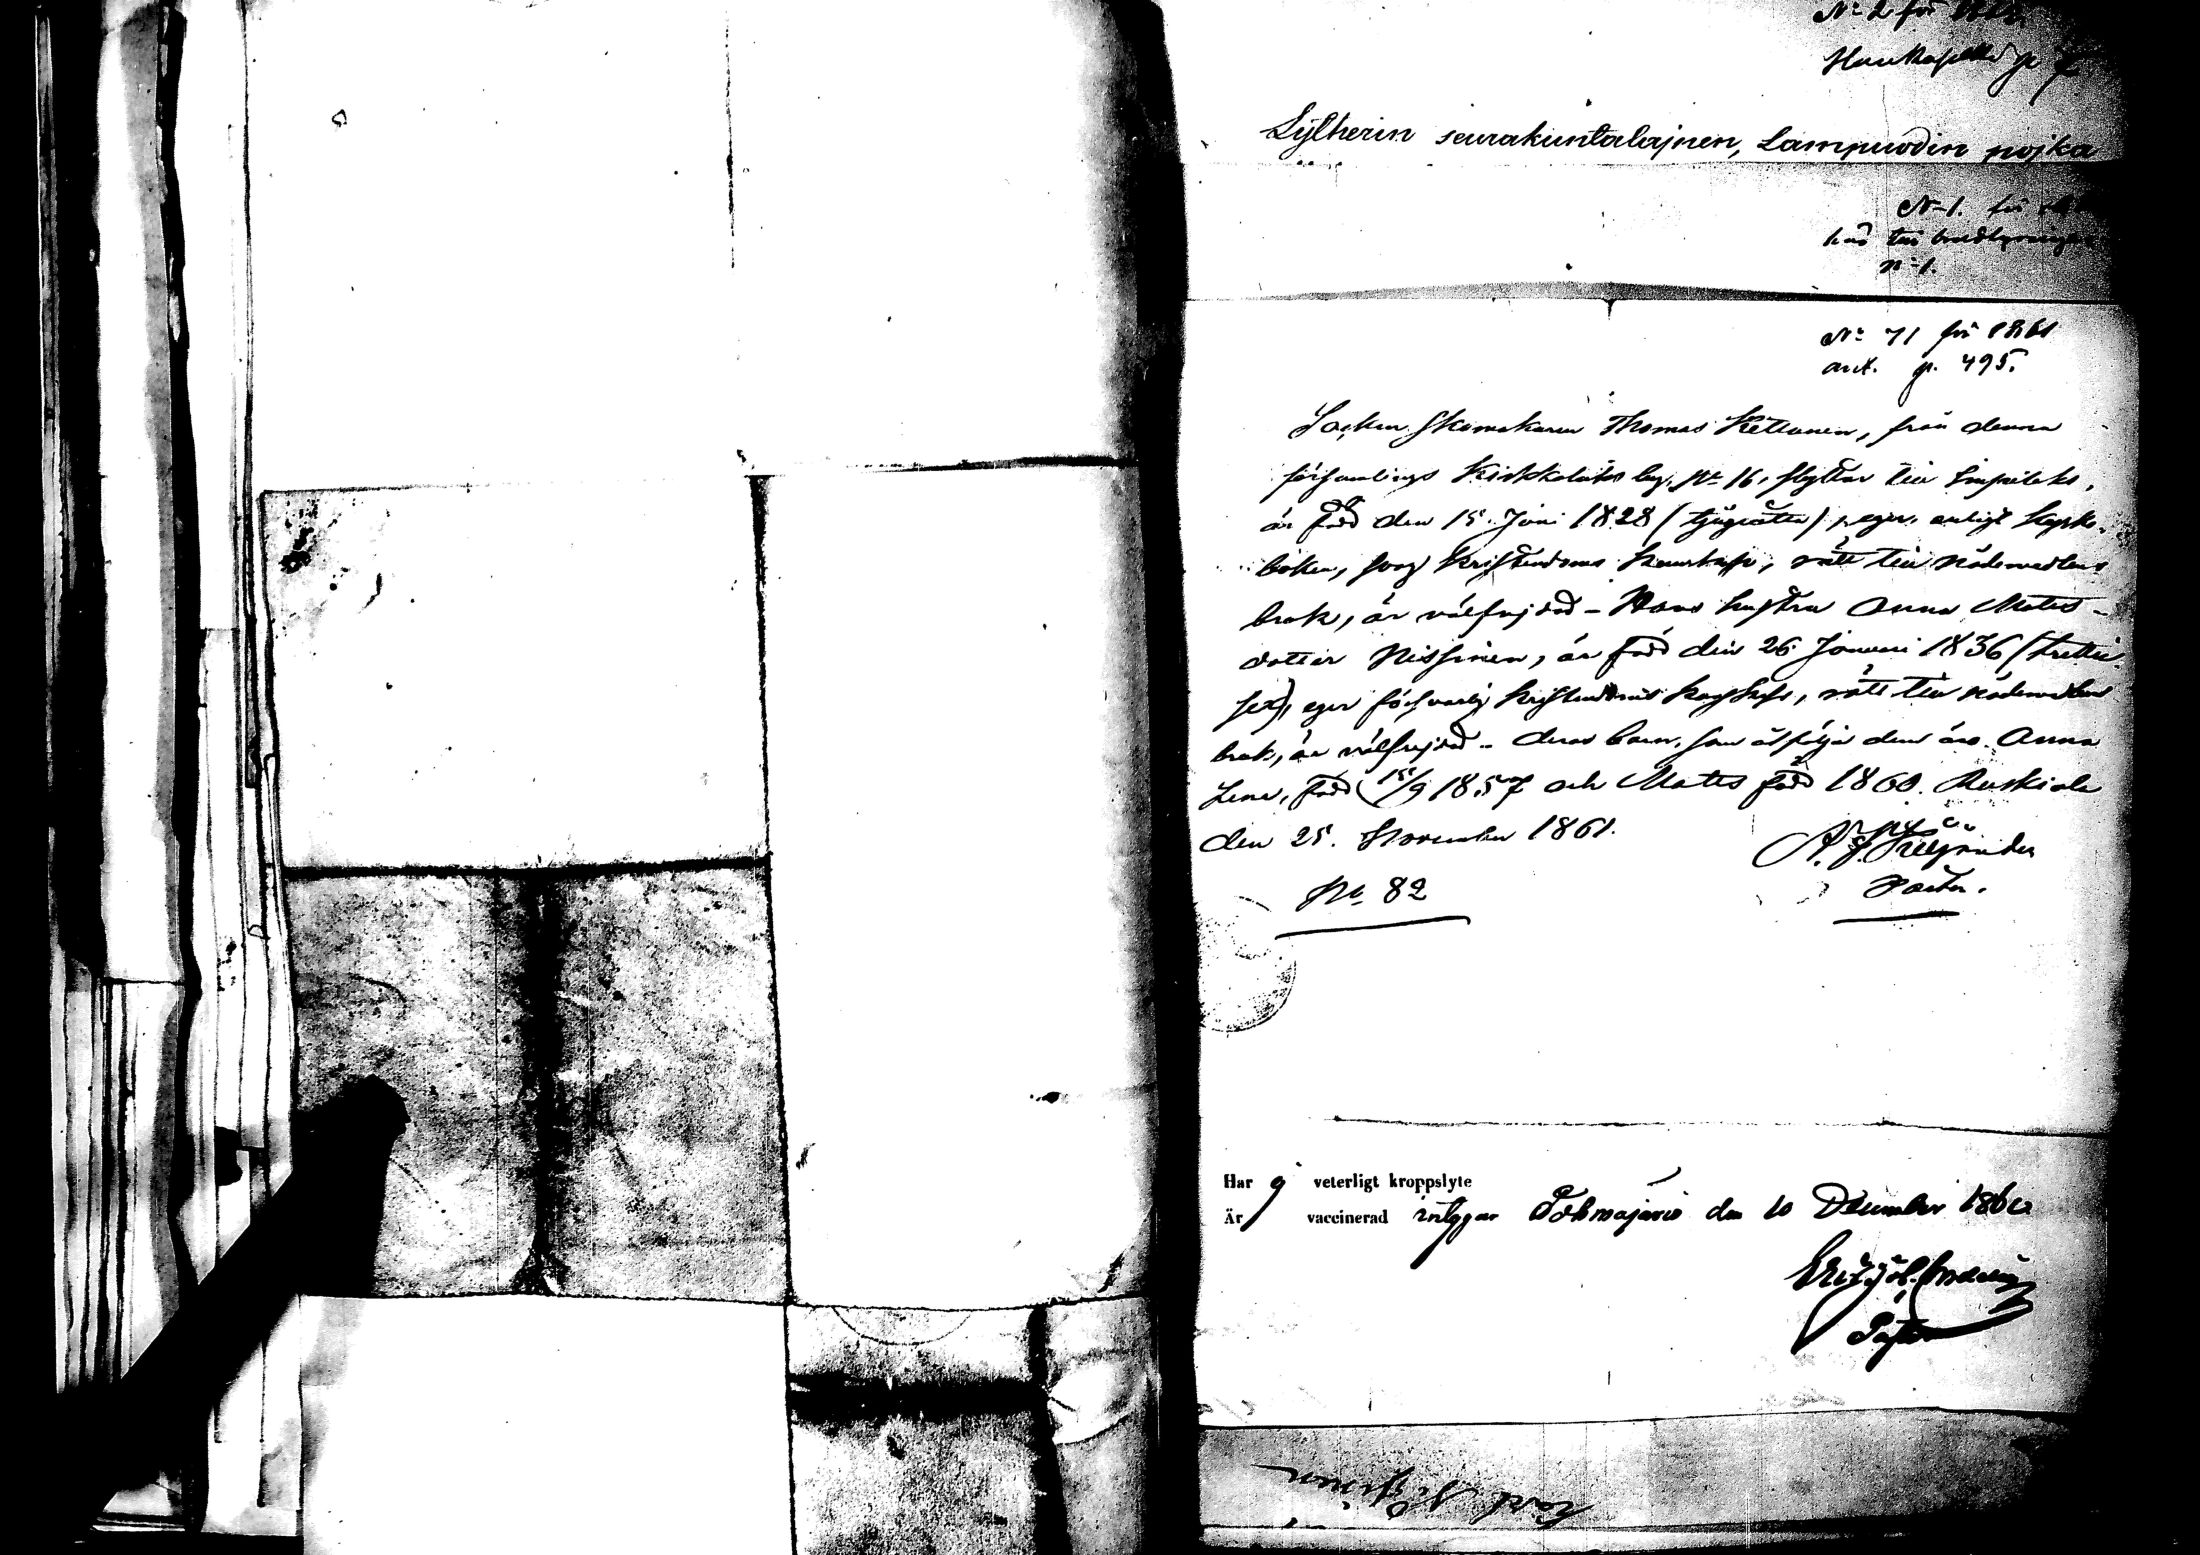 No 2 för
p 7
Sylherin seurakuntalajnen, Lampuodin pojka
N-1. för
n-1.
No 71 för 1861
ant. p. 495.
Socken Skomakaren Thomas Kettunen, från denna
församlings Kirkkolaks by, No 16, flyttar till Impilaks,
är född den 15 Juni 1828 (tjuguåtta), eger, enligt Kyrko-
boken, svag Kristendoms kunskap, rätt till nådemedlens
bruk, är välfrejdad - Hans hustru Anna Mats-
dotter Nissinen, är född den 26 Januari 1836 (trettio-
sex), eger försvarlig Kristendoms kunskap, rätt till nådemedlens
bruk, är välfrejdad - deras barn, som åtfölja dem äro Anna
Lena, född 15/9 1857 och Matts född 1860. Ruskiala
den 25. November 1861.
No 82
Pastor.
Har g veterligt kroppslyte
Är vaccinerad intygar Tohmajärvi den 10 December 1860
Pastor